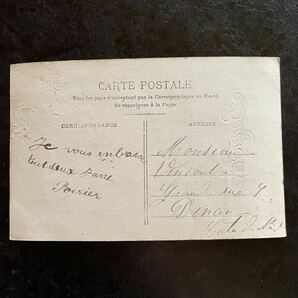 CARTE POSTALE
Tous les pays n'acceptent pas la Correspondance au Recto
Se renseigner à la Poste
CORRESPONDANCE
ADRESSE
Je vous embrasse
tout deux
Poirier
Monsieur
Grande rue
Dinan
Côtes d. Nord